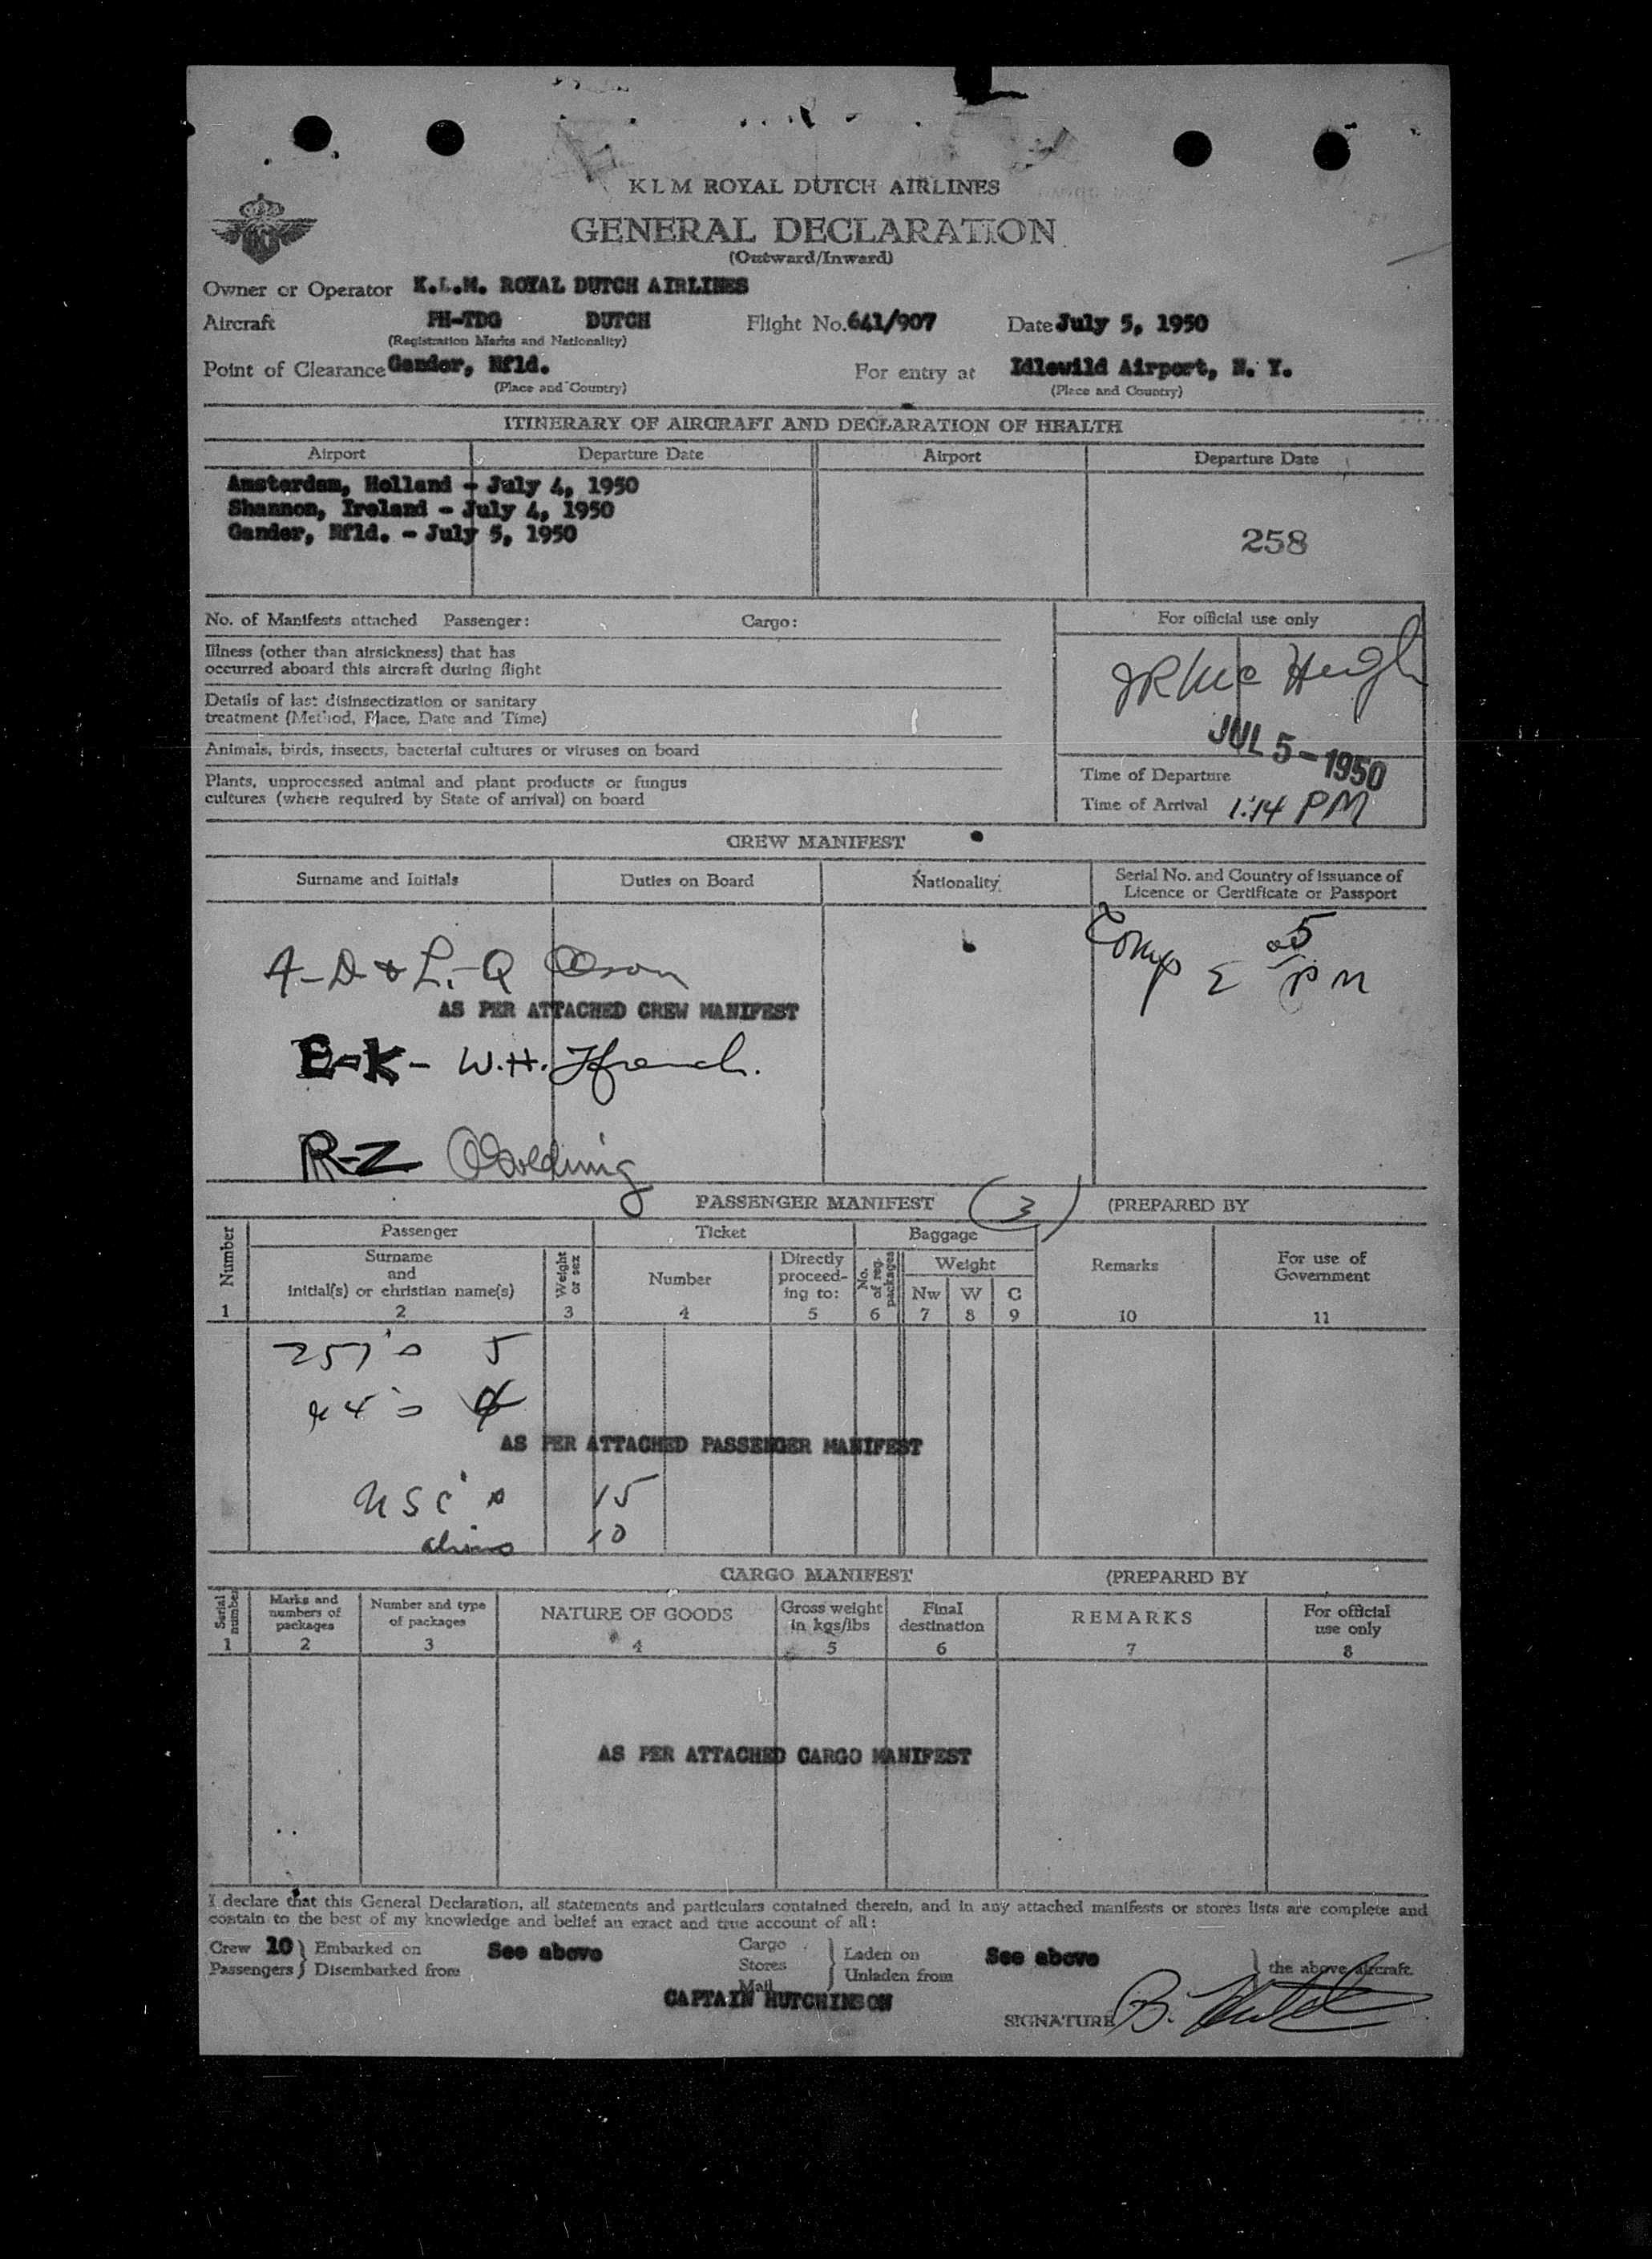 KLM ROYAL DUTCH AIRLINES
GENERAL DECLARATION
(Outward/Inward)
Owner or Operator K.L.M. ROYAL DUTCH AIRLINES
Aircraft PH-TDG DUTCH Flight No. 641/907 Date July 5, 1950
(Registration Marks and Nationality)
Point of Clearance Gander, Nfld. For entry at Idlewild Airport, N. Y.
(Place and Country) (Place and Country)
ITINERARY OF AIRCRAFT AND DECLARATION OF HEALTH
Airport Departure Date Airport Departure Date
Amsterdam, Holland - July 4, 1950
Shannon, Ireland - July 4, 1950
Gander, Nfld. - July 5, 1950
258
No. of Manifests attached Passenger: Cargo: For official use only
Illness (other than airsickness) that has
occurred aboard this aircraft during flight
JR McHugh
Details of last disinsectization or sanitary
treatment (Method, Place, Date and Time)
JUL 5 - 1950
Animals, birds, insects, bacterial cultures or viruses on board
Plants, unprocessed animal and plant products or fungus
cultures (where required by State of arrival) on board
Time of Departure
Time of Arrival 1:14 PM
CREW MANIFEST
Surname and Initials Duties on Board Nationality Serial No. and Country of issuance of
Licence or Certificate or Passport
A-D & L-Q Olson
Comp 2 05 PM
AS PER ATTACHED CREW MANIFEST
E-K- W.H. Ffrench.
R-Z Golding
PASSENGER MANIFEST (3) (PREPARED BY
Number Passenger Ticket Baggage
Surname
and
initial(s) or christian name(s)
Weight or sex
Number
Directly
proceed-
ing to:
No. of reg. packages
Weight
Nw W C
Remarks
For use of
Government
1 2 3 4 5 6 7 8 9 10 11
257's 5
AS PER ATTACHED PASSENGER MANIFEST
USC's 15
aliens 10
CARGO MANIFEST (PREPARED BY
Serial number
Marks and
numbers of
packages
Number and type
of packages
NATURE OF GOODS
Gross weight
in kgs/lbs
Final
destination
REMARKS
For official
use only
1 2 3 4 5 6 7 8
AS PER ATTACHED CARGO MANIFEST
I declare that this General Declaration, all statements and particulars contained therein, and in any attached manifests or stores lists are complete and
contain to the best of my knowledge and belief an exact and true account of all:
Crew 10 } Embarked on See above Cargo } Laden on See above } the above aircraft.
Passengers } Disembarked from Stores Unladen from
Mail
CAPTAIN HUTCHINSON
SIGNATURE B.